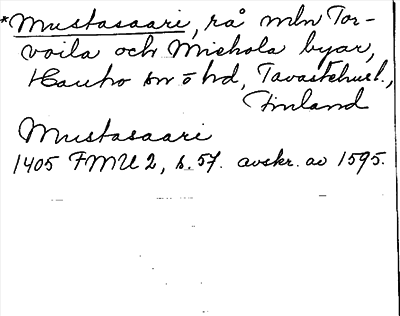 *Mustasaari, rå mln Tor-
voila och Miehola byar,
Hauho sn ö hd, Tavastehusl.,
Finland
Mustasaari
1405 FMU 2, s. 57. avskr. av 1595.